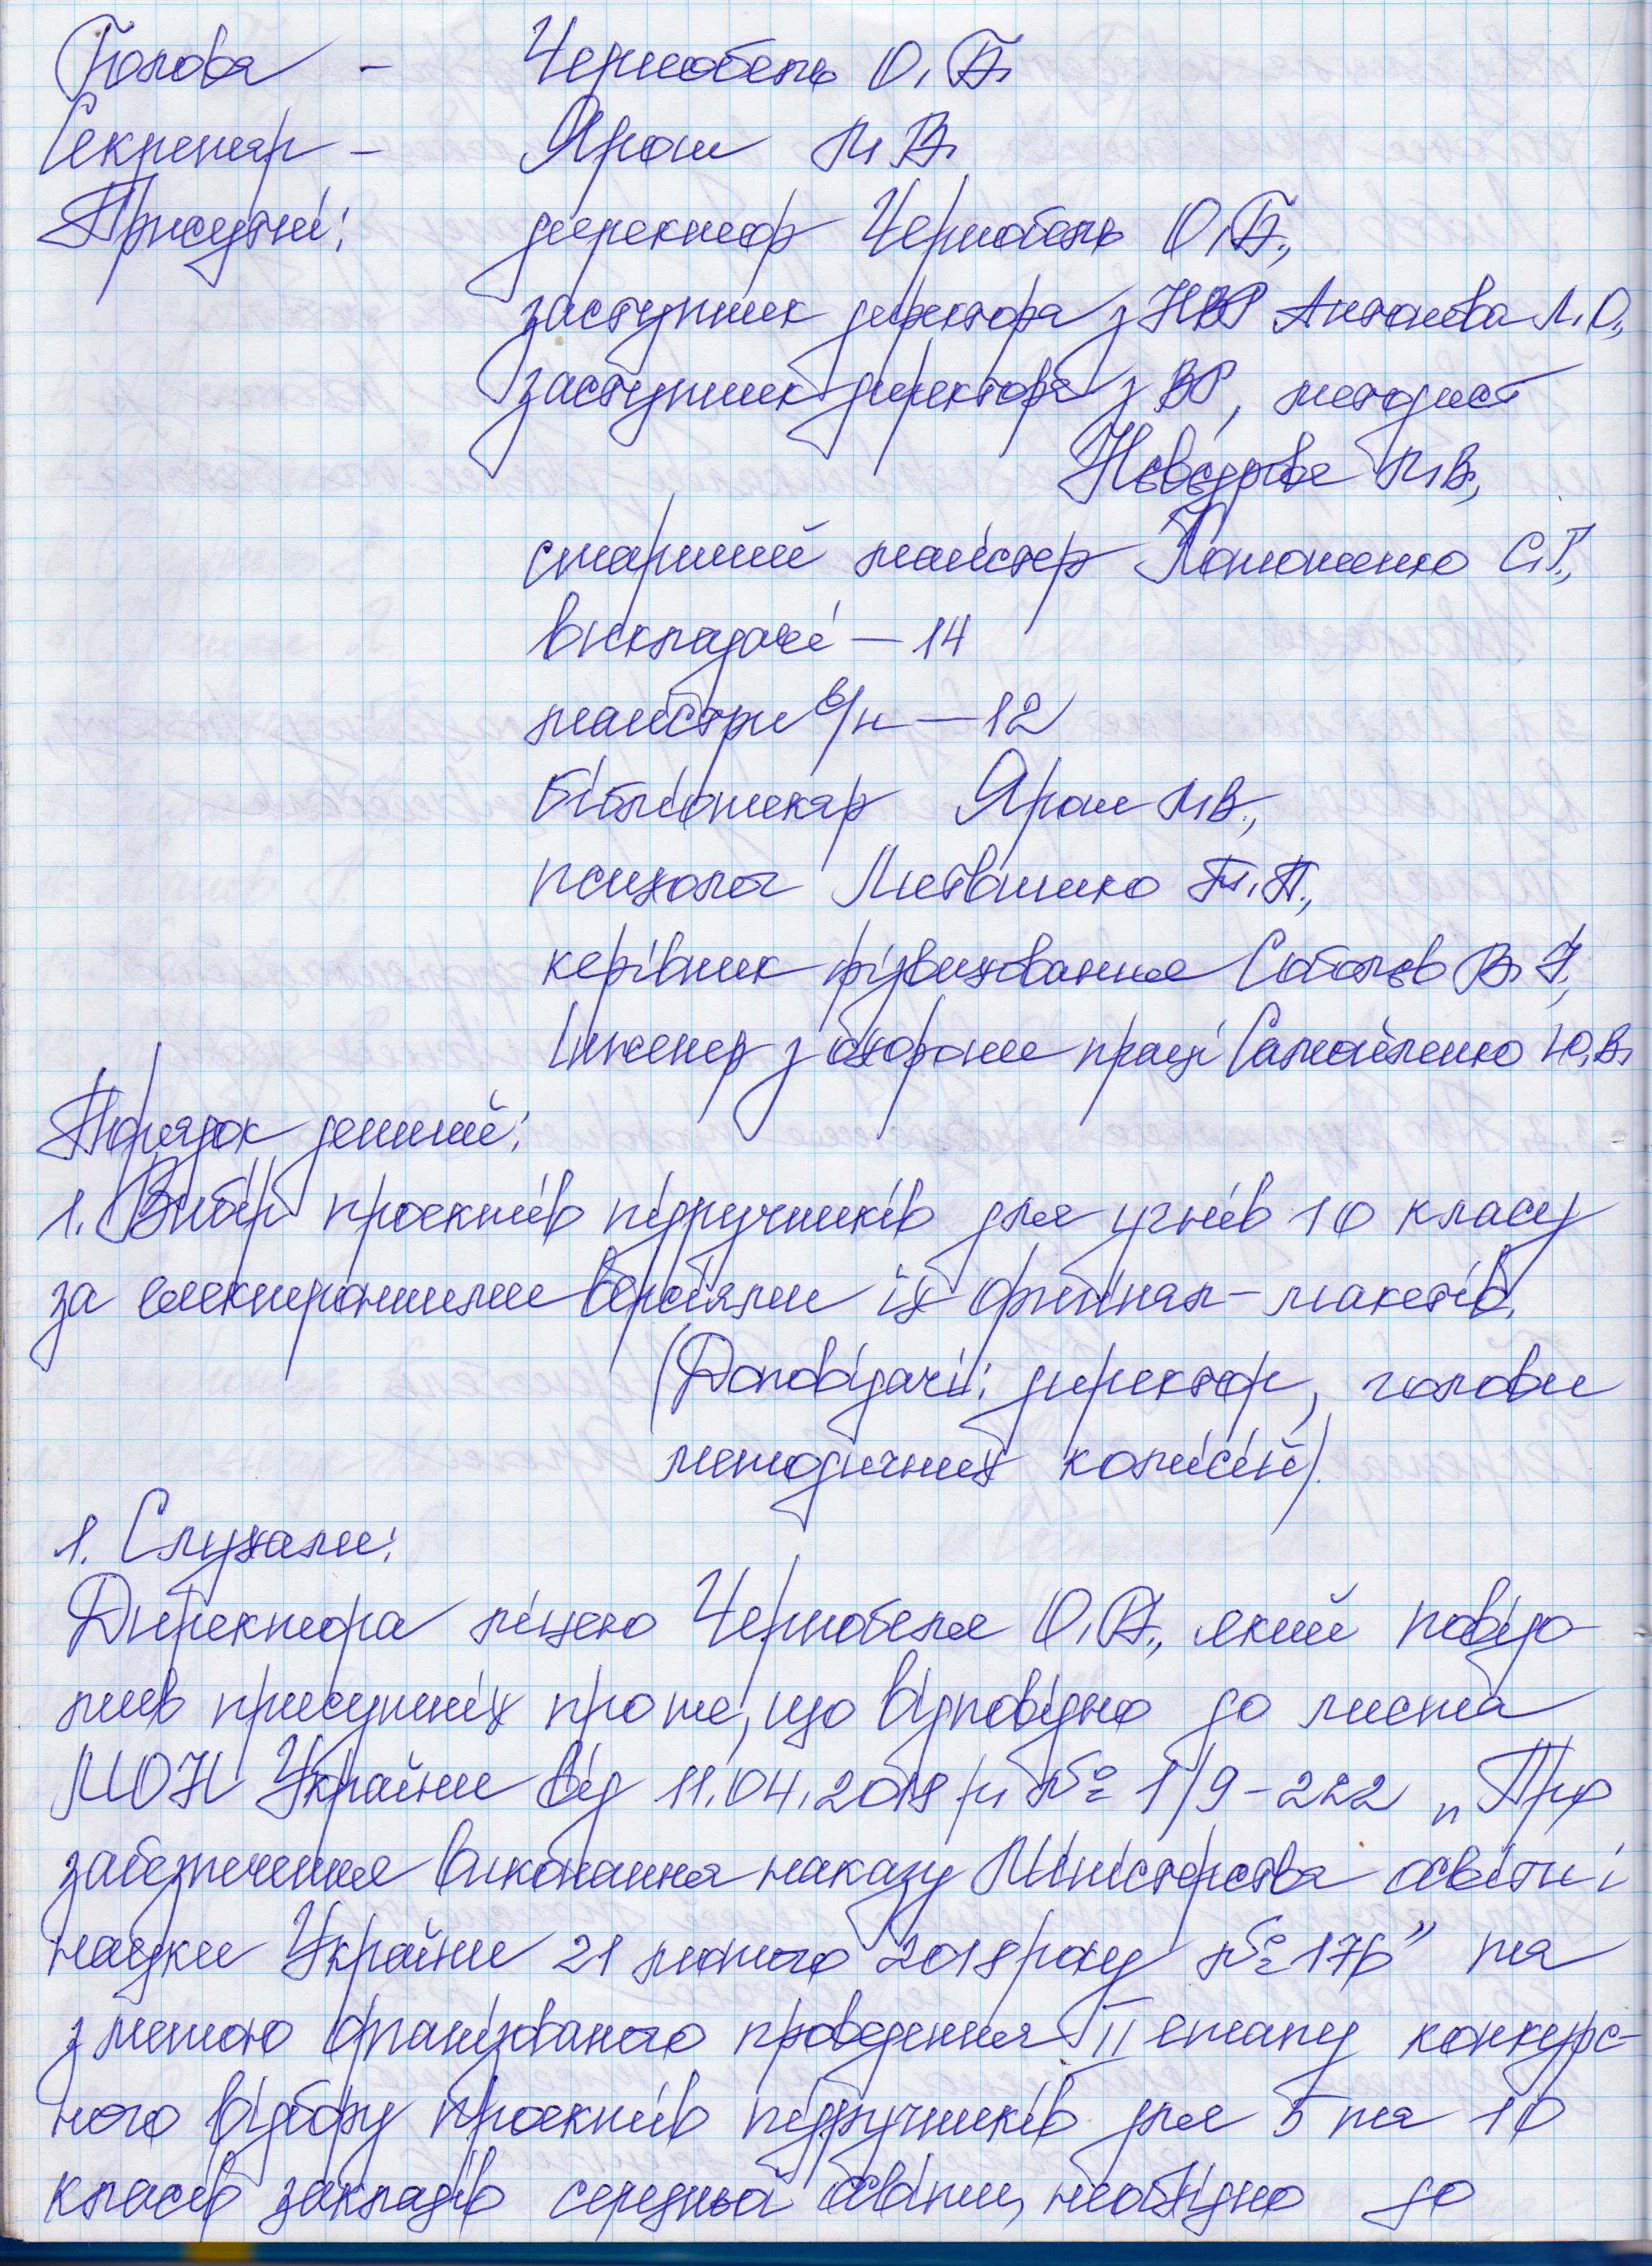 Голова – Чернобель О.В.
Секретар – Ярош М.В.
Присутні: директор Чернобель О.В.,
заступник директора з НВР Антонєва Л.О.,
заступник директора з ВР, методист
Нєвєдрова М.В.,
старший майстер Томашенко С.Г.,
викладачі – 14
майстри в/н – 12
бібліотекар Ярош М.В.,
психолог Литвиненко Т.П.,
керівник фізвиховання Соболєв В.І.,
інженер з охорони праці Самойленко Ю.В.
Порядок денний:
1. Вибір проектів підручників для учнів 10 класу
за електронними версіями їх оригінал-макетів.
(Доповідачі: директор, голови
методичних комісій).
1. Слухали:
Директора ліцею Чернобеля О.В., який повідо-
мив присутніх про те, що відповідно до листа
МОН України від 11.04.2018 р. № 1/9-222 „Про
забезпечення виконання наказу Міністерства освіти і
науки України 21 лютого 2018 року № 176" та
з метою організованого проведення ІІ етапу конкурс-
ного відбору проектів підручників для 5 та 10
класів закладів середньої освіти, необхідно до